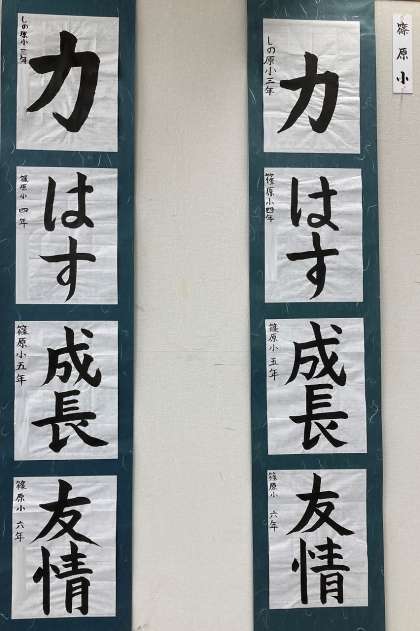 篠原小
力
しの原小三年
はす
篠原小四年
成長
篠原小五年
友情
篠原小六年
力
しの原小三年
はす
篠原小四年
成長
篠原小五年
友情
篠原小六年